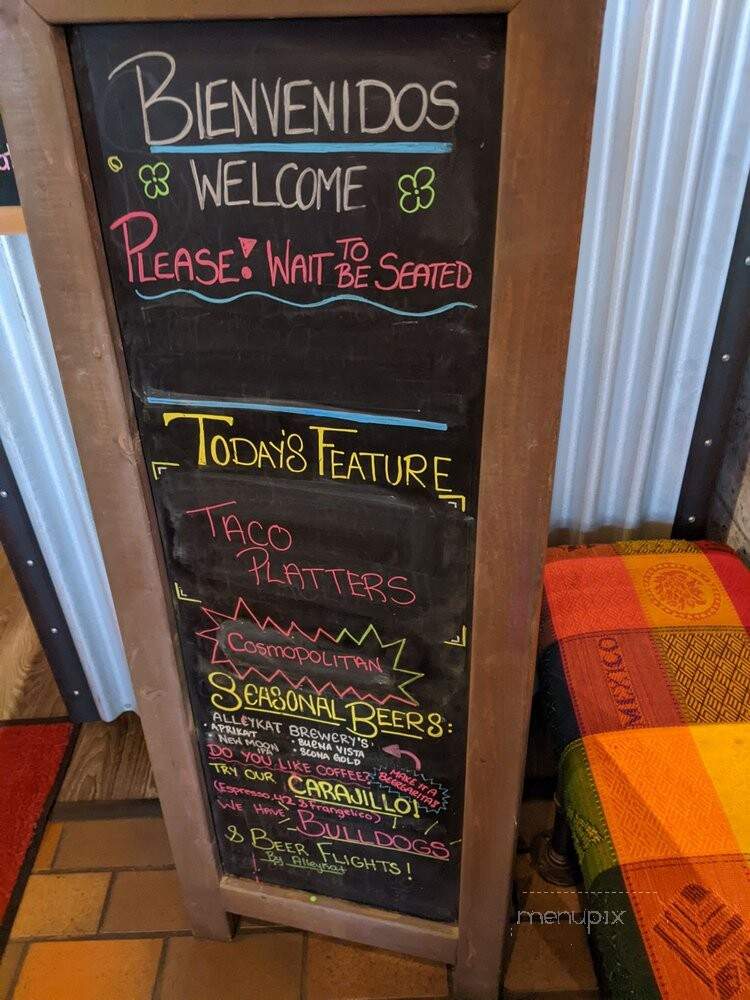 BIENVENIDOS
WELCOME
PLEASE! WAIT TO BE SEATED
TODAY'S FEATURE
TACO
PLATTERS
COSMOPOLITAN
SEASONAL BEERS:
ALLEYKAT BREWERY'S
• APRIKAT
• NEW MOON IPA
• BUENA VISTA
• SCONA GOLD
DO YOU LIKE COFFEE?
MAKE IT A BEERGARITA!!
TRY OUR CARAJILLO!
(Espresso, 42 & Frangelico)
WE HAVE BULLDOGS
& BEER FLIGHTS!
By Alleykat
MEXICO
menupix